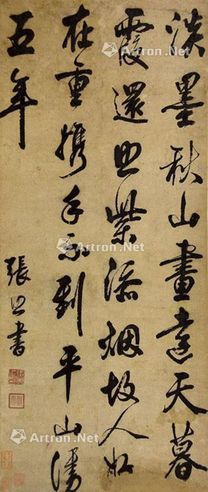 淡墨秋山畫遠天暮
霞還照紫添烟故人好
在重携手不到平山謾
五年
張照書
Artron.Net
Artron.Net
Artron.Net